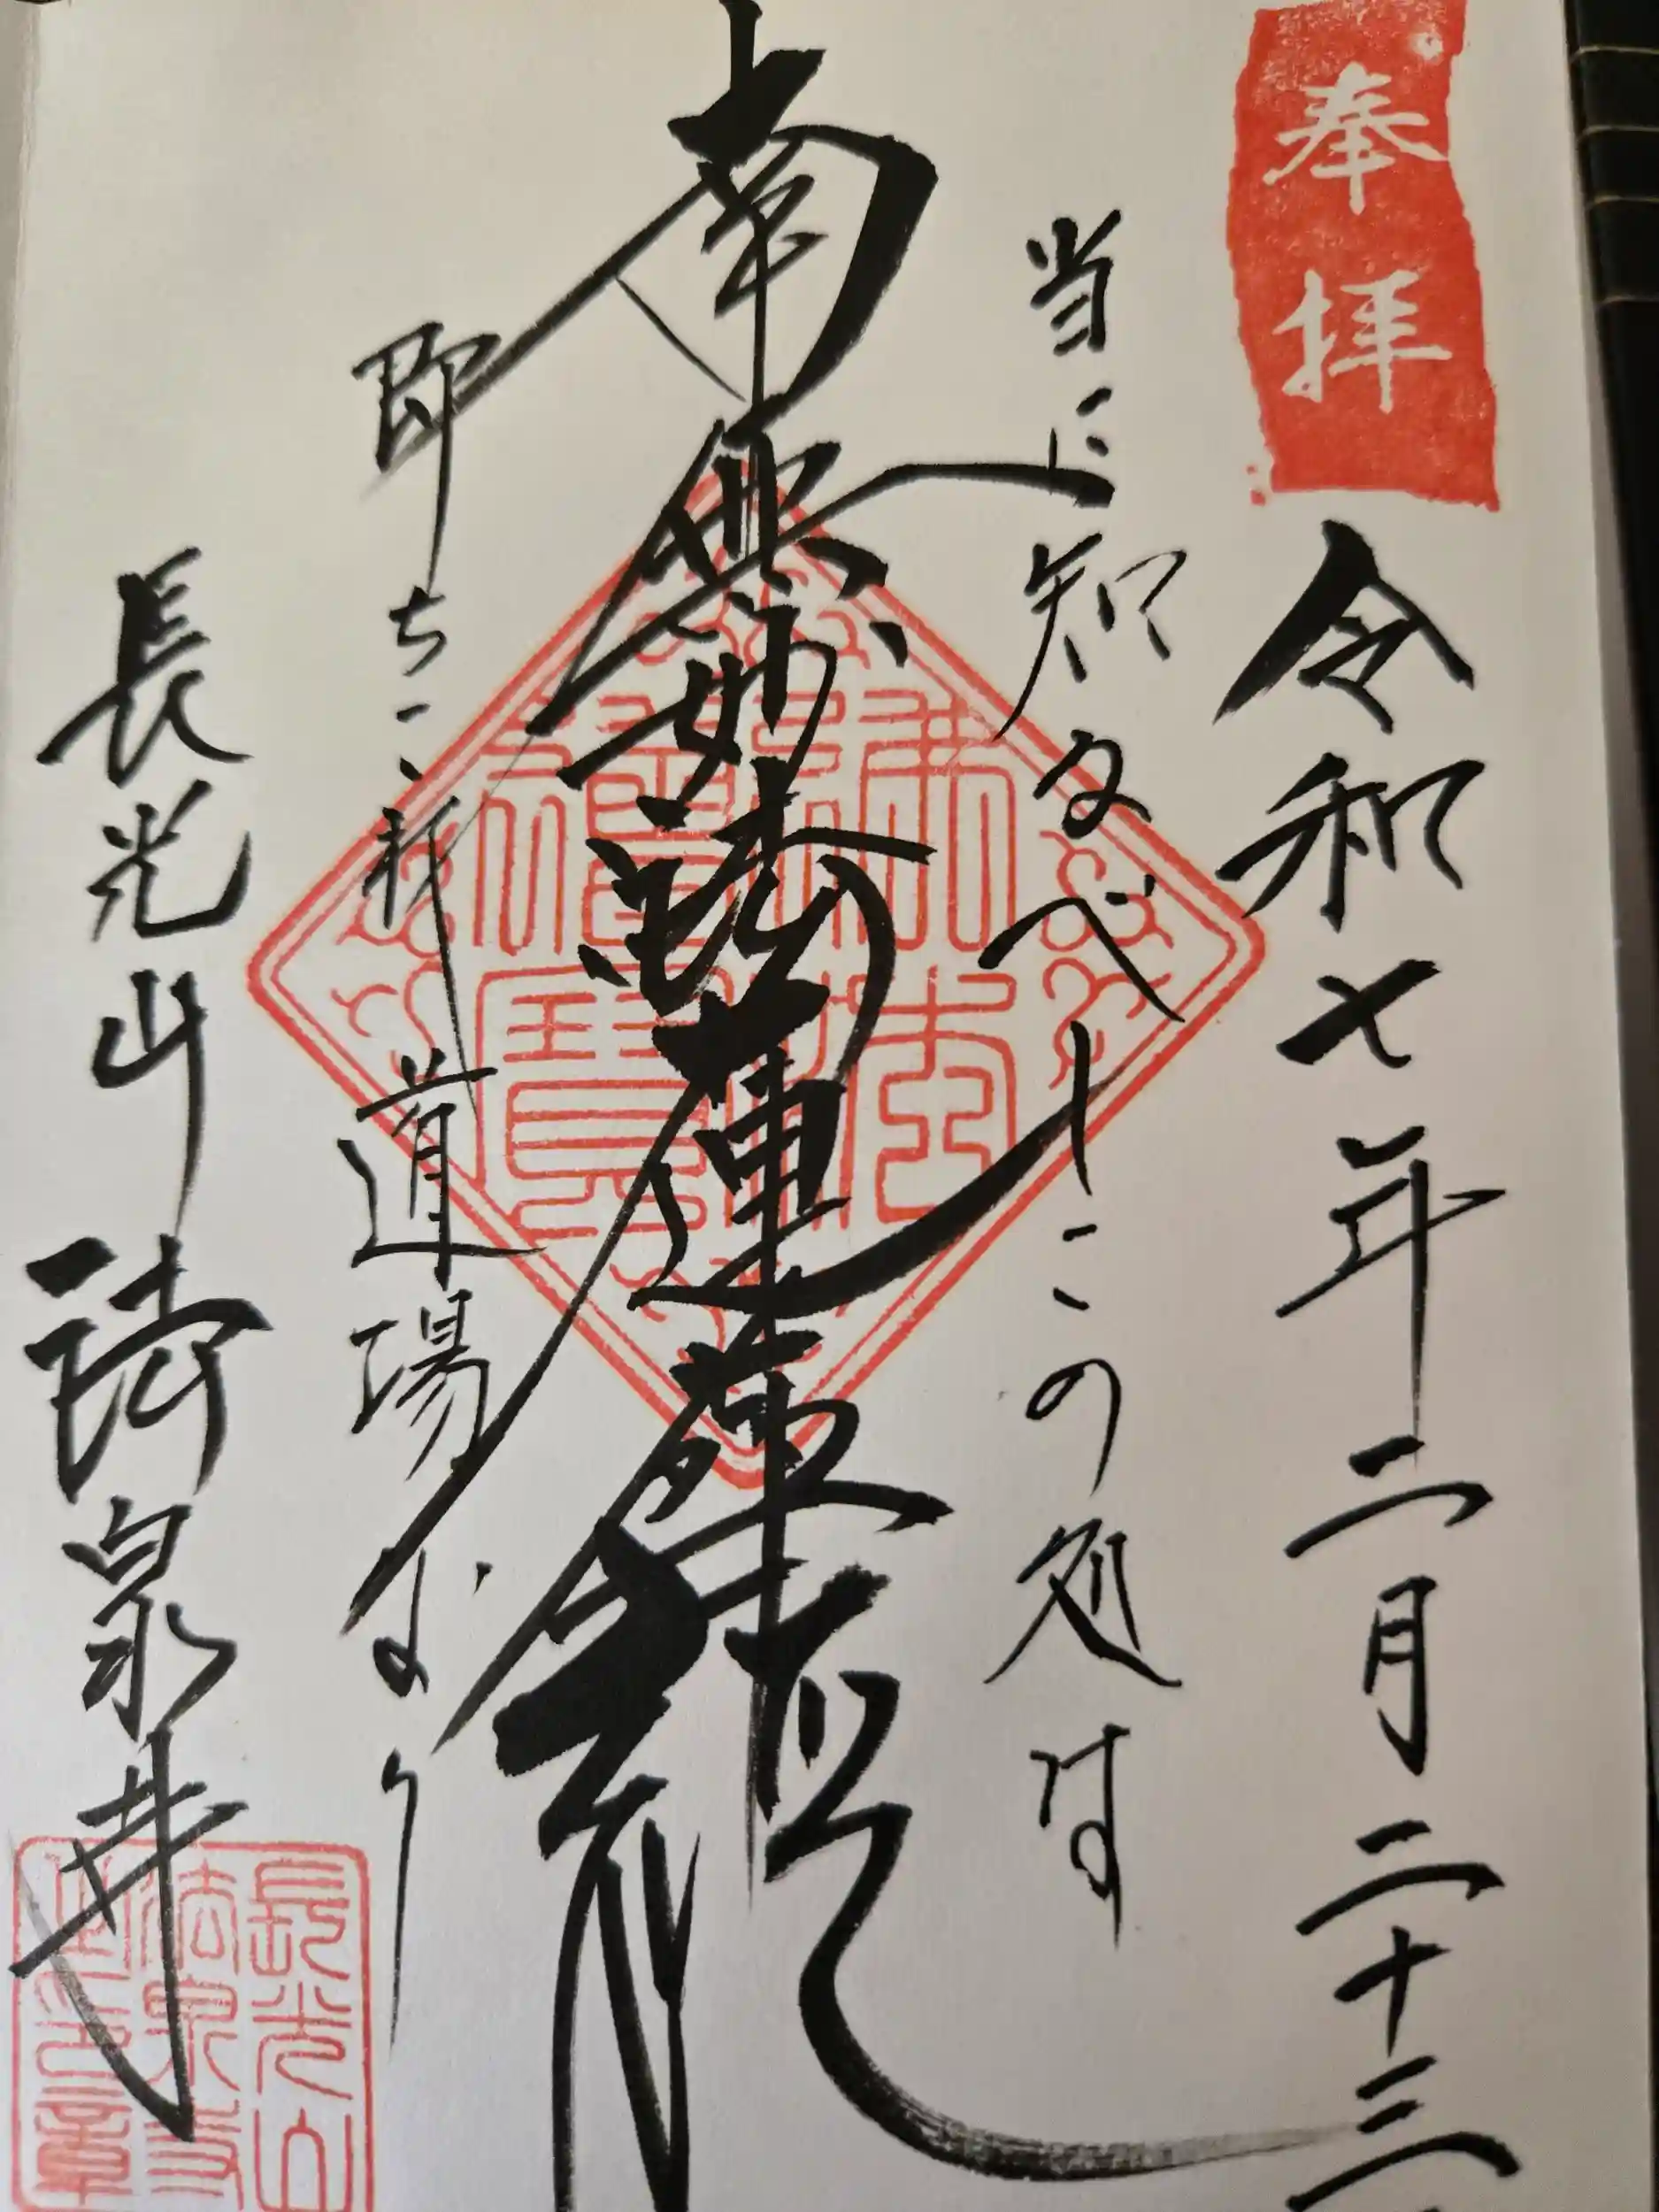 奉拝
令和七年二月二十三
当に知るべしこの処は
南無妙法蓮華経
即ちこれ道場なり
長光山 法泉寺
長光山法泉寺